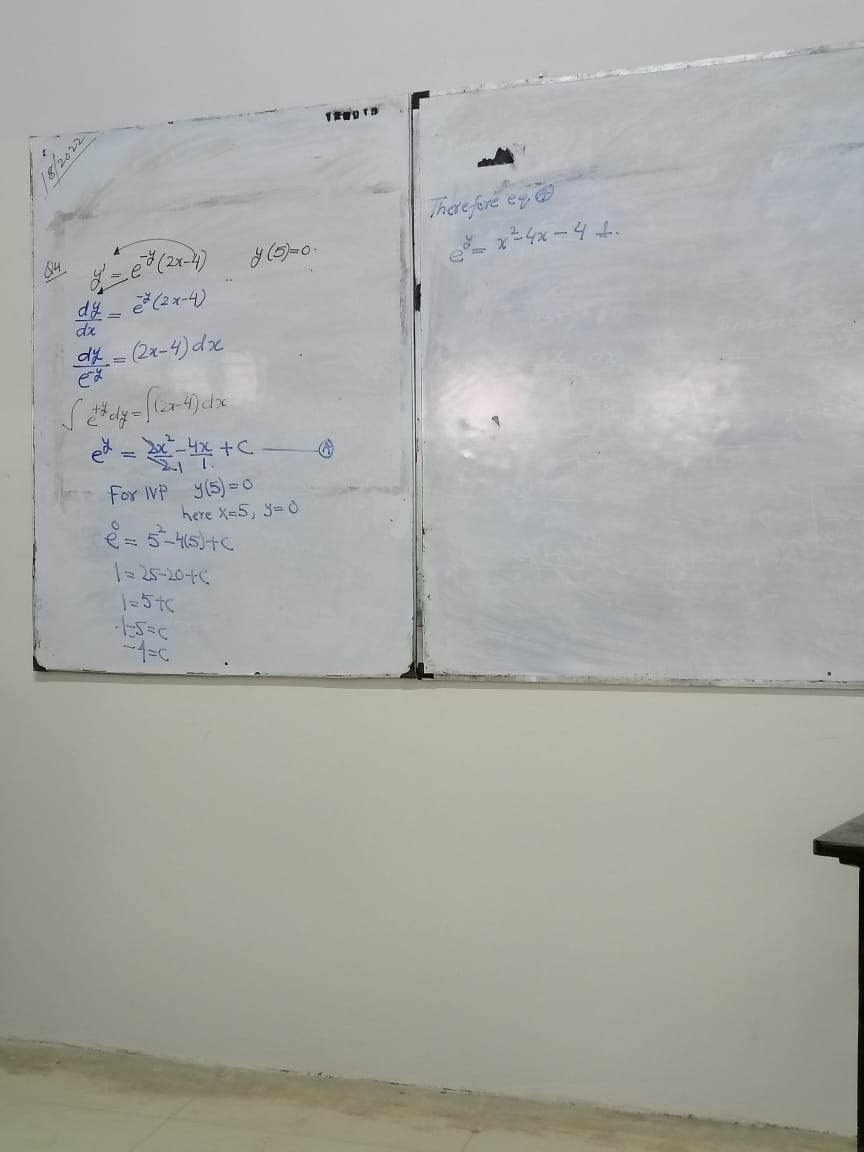 18/2022
Q4 y' = e^{-y}(2x-4) y(5)=0.
dy/dx = e^{-y}(2x-4)
dy/e^{-y} = (2x-4)dx
∫e^{+y}dy = ∫(2x-4)dx
e^y = 2x²/2 - 4x/1 + C —— Ⓐ
For IVP y(5)=0
here x=5, y=0
e^0 = 5²-4(5)+C
1=25-20+C
1=5+C
1-5=C
-4=C
Therefore eq Ⓐ
e^y = x²-4x-4